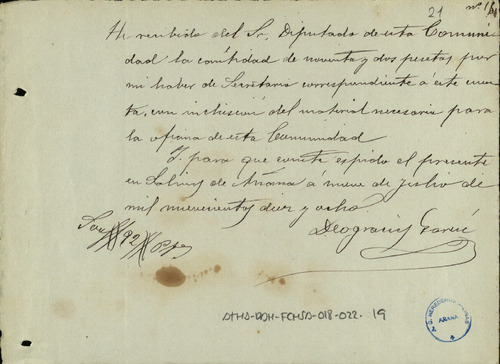 21
He recibido del Sr. Diputado de esta Comuni
dad la cántidad de noventa y dos pesetas por
mi haber de Secretario correspondiente á este cuen
ta, con inclusion del material necesario para
la oficina de esta Comunidad
Y para que conste expido el presente
en Salinas de Añana á nueve de Julio de
mil novecientos diez y ocho.
Deogracias Garcia
Son 92 Ptas
ATHA-DAH-FCHSA-018-022. 19
AÑANA